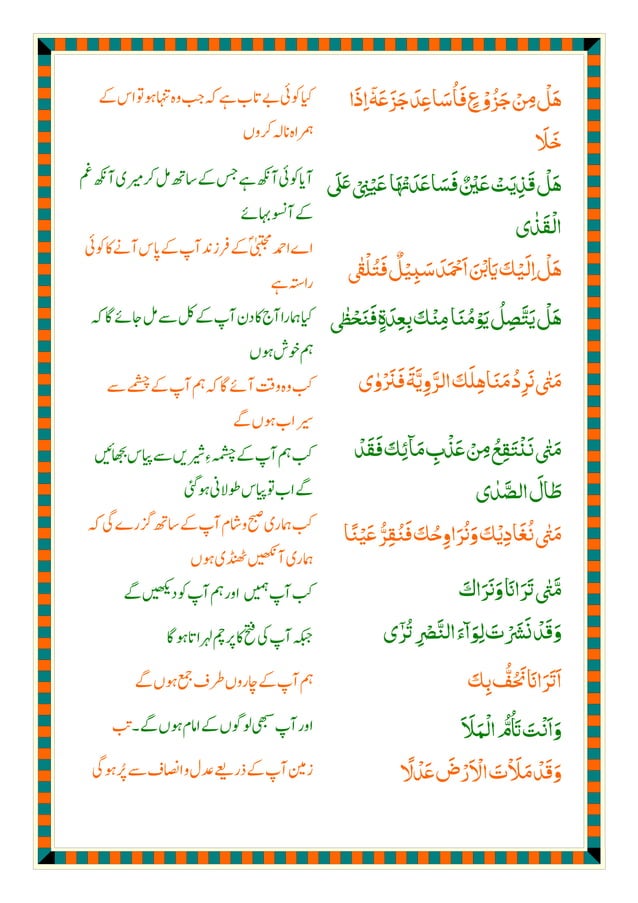 هَلْ مِنْ جَزُوْعٍ فَاُسَاعِدَ جَزَعَهٗٓ اِذَا
خَلَا
کیا کوئی بے تاب ہے کہ جب وہ تنہا ہو تو اس کے
ہمراہ نالہ کروں
هَلْ قَذِيَتْ عَيْنٌ فَسَاعَدَتْهَا عَيْنِيْ عَلَى
الْقَذٰى
آیا کوئی آنکھ ہے جس کے ساتھ مل کر میری آنکھ غم
کے آنسو بہائے
هَلْ اِلَيْكَ يَابْنَ اَحْمَدَ سَبِيْلٌ فَتُلْقٰى
اے احمد مجتبیٰؐ کے فرزند آپ کے پاس آنے کا کوئی
راستہ ہے
هَلْ يَتَّصِلُ يَوْمُنَا مِنْكَ بِعِدَةٍ فَنَحْظٰى
کیا ہمارا آج کا دن آپ کے کل سے مل جائے گا کہ
ہم خوش ہوں
مَتٰى نَرِدُ مَنَاهِلَكَ الرَّوِيَّةَ فَنَرْوٰى
کب وہ وقت آئے گا کہ ہم آپ کے چشمے سے
سیراب ہوں گے
مَتٰى نَنْتَقِعُ مِنْ عَذْبِ مَآئِكَ فَقَدْ
طَالَ الصَّدٰى
کب ہم آپ کے چشمہءِ شیریں سے پیاس بجھائیں
گے اب تو پیاس طولانی ہو گئی
مَتٰى نُغَادِيْكَ وَنُرَاوِحُكَ فَنُقِرُّ عَيْنًا
کب ہماری صبح و شام آپ کے ساتھ گزرے گی کہ
ہماری آنکھیں ٹھنڈی ہوں
مَتّٰى تَرَانَا وَنَرَاكَ
کب آپ ہمیں اور ہم آپ کو دیکھیں گے
وَقَدْ نَشَرْتَ لِوَآءَ النَّصْرِ تُرٰى
جبکہ آپ کی فتح کا پرچم لہراتا ہو گا
اَتَرَانَا نَحُفُّ بِكَ
ہم آپ کے چاروں طرف جمع ہوں گے
وَاَنْتَ تَاُمُّ الْمَلَاَ
اور آپ سبھی لوگوں کے امام ہوں گے۔ تب
وَقَدْ مَلَاْتَ الْاَرْضَ عَدْلًا
زمین آپ کے ذریعے عدل و انصاف سے پُر ہو گی